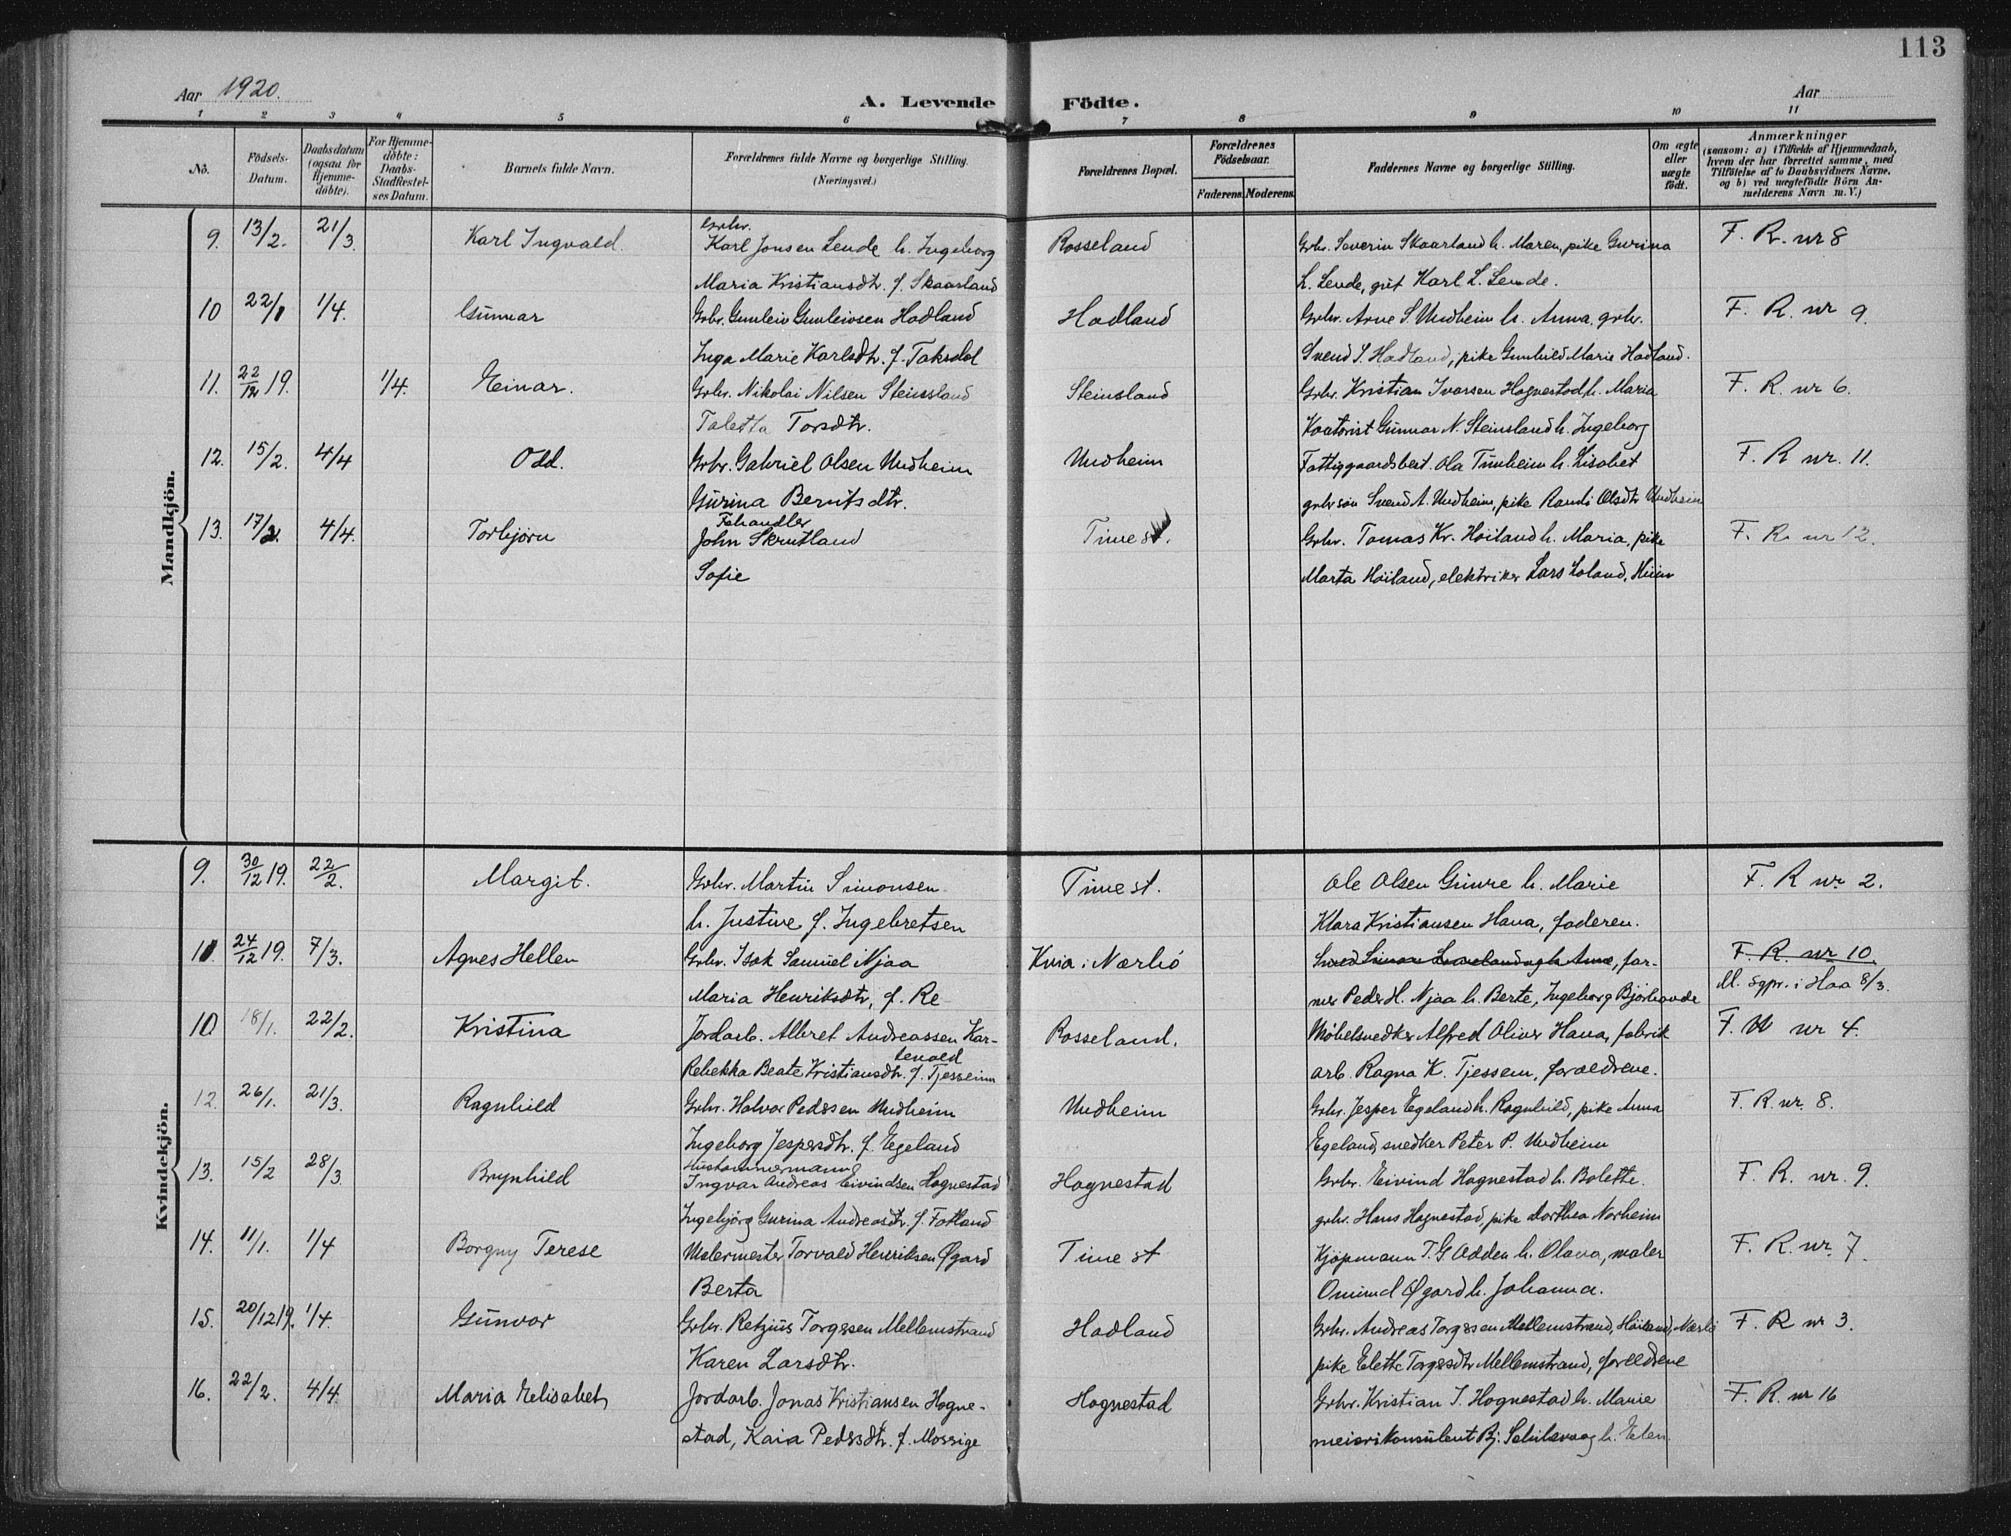 113
Aar 1920.
A. Levende Födte.
Aar
1 2 3 4 5 6 7 8 9 10 11
No.
Födsels-Datum.
Daabsdatum (ogsaa for Hjemme-döbte).
For Hjemme-döbte: Daabs-Stadfæstel-ses Datum.
Barnets fulde Navn.
Forældrenes fulde Navne og borgerlige Stilling. (Næringsvei.)
Forældrenes Bopæl.
Forældrenes Födselsaar.
Faderens. Moderens.
Faddernes Navne og borgerlige Stilling.
Om ægte eller uægte födt.
Anmærkninger
(saasom: a) i Tilfælde af Hjemmedaab,
hvem der har forrettet samme, med
Tilföielse af to Daabsvidners Navne,
og b) ved uægtefödte Börn An-
melderens Navn m. V.)
Mandkjön.
Grbr.
9. 13/2. 21/3. Karl Ingvald. Karl Jonsen Lende h. Ingeborg Rosseland Grbr. Severin Skaarland h. Maren, pike Gurina F. R. nr 8
Maria Kristiansdtr. f. Skaarland L. Lende, gut Karl L. Lende.
10 22/1 1/4. Gunnar Grbr. Gunleiv Gunleivsen Hadland Hadland Grbr. Arne S. Undheim h. Anna, grbr. F. R. nr 9.
Inga Marie Karlsdtr. f. Taksdal Svend S. Hadland, pike Gunhild Marie Hadland.
11. 22/12 19. 1/4. Einar. Grbr. Nikolai Nilsen Steinsland Steinsland Grbr. Kristian Ivarsen Hognestad h. Maria F. R. nr 6.
Taletta Torsdtr. Gunnar N. Steinsland h. Ingeborg
12. 15/2. 4/4 Odd. Grbr. Gabriel Olsen Undheim Undheim Fattiggaardsbest. Ola Tunheim h. Lisabet F. R nr. 11.
Gurina Berntsdtr. grbr søn Svend A. Undheim, pike Randi Olsdtr Undheim
Fehandler
13. 17/2. 4/4. Torbjørn John Skrutland Time st. Grbr. Tomas Kr. Høiland h. Maria, pike F. R. nr 12.
Sofie Marta Høiland, elektriker Lars Loland,
Kvindekjön.
9. 30/12 19. 22/2. Margit. Grbr. Martin Simonsen Time st. Ole Olsen Gimre h. Marie F. R nr 2.
h. Justine f. Ingebretsen Klara Kristiansen Hana, faderen.
11. 24/12 19. 7/3. Agnes Hellen Grbr. Isak Samuel Njaa Kvia i Nærbö h. Anna, far- F. R. nr 10.
Maria Henriksdtr, f. Re mer Peder H. Njaa h. Berte, Ingeborg Bjorhovde M. sgpr. i Haa 8/3.
10. 18/1. 22/2. Kristina Jordarb. Albret Andreassen Kar- Rosseland. Møbelsnedker Alfred Oliver Hana, fabrik F. R nr 4.
tevold
Rebekka Beate Kristiansdtr. f. Tjessem arb. Ragna K. Tjessem, forældrene.
12. 26/1. 21/3. Ragnhild Grbr. Halvor Pedersen Undheim Undheim Grbr. Jesper Egeland h. Ragnhild, pike Anna F. R. nr. 8.
Ingeborg Jespersdtr. f. Egeland Egeland, snedker Peter P. Undheim
Hustømmermann
13. 15/2 28/3. Brynhild Ingvar Andreas Eivindsen Hognestad Hognestad Grbr. Eivind Hognestad h. Bolette. F. R. nr. 9.
Ingebjörg Gurina Andreasdtr. f. Fotland grbr. Hans Hognestad, pike Dorthea Norheim
14. 11/1. 1/4 Borgny Terese Malermester Torvald Henriksen Øgard Time st Kjøpmann T. G Odden h. Olava, maler F. R. nr. 7.
Berta Omund Øgard h. Johanna.
15. 20/12 19. 1/4. Gunvor Grbr. Retzius Torgersen Mellemstrand Hadland Grbr. Andreas Torgersen Mellemstrand, Høiland, Nærbö F. R nr 3.
Karen Larsdtr. pike Elette Torgersdtr Mellemstrand, forældrene
16. 22/2. 4/4. Maria Elisabet Jordarb. Jonas Kristiansen Hogne- Hognestad Grbr. Kristian I. Hognestad h. Marie F. R. nr 16
stad, Kaia Pedersdtr. f. Mossige meierikonsulent Bj. h. Elen